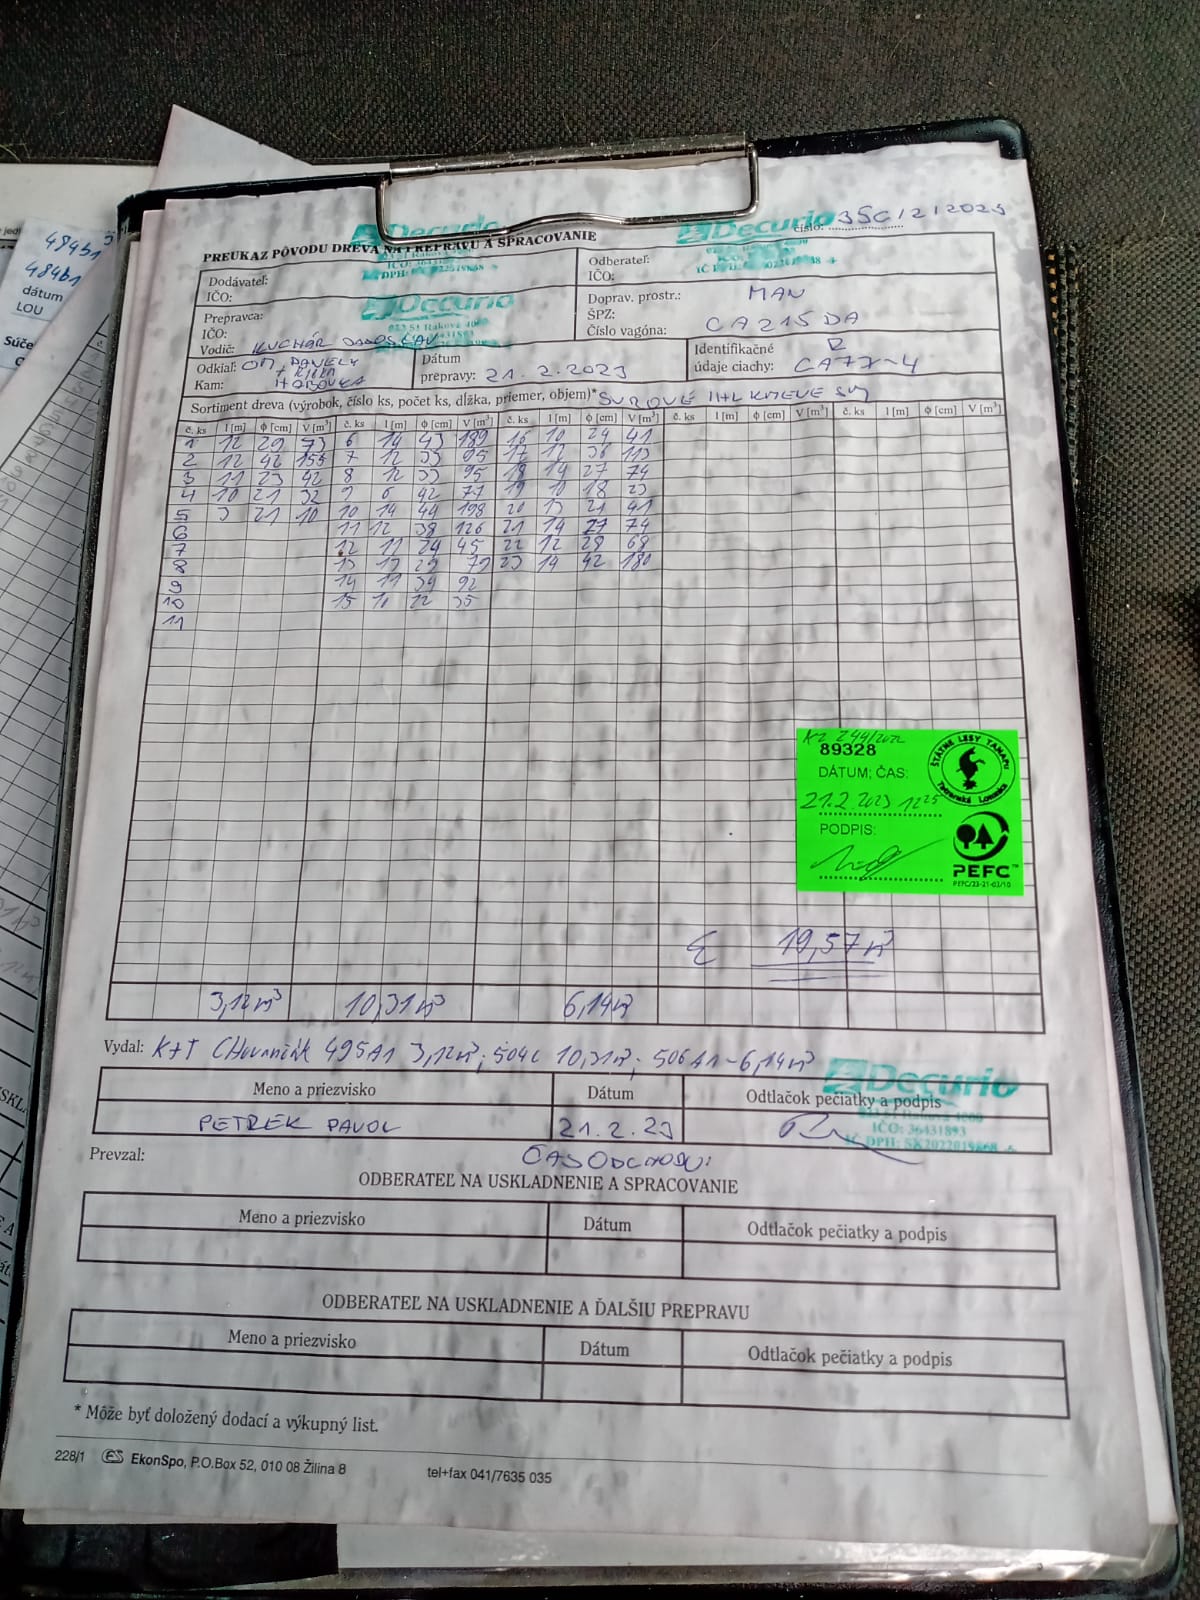 494b1
484b1
dátum
LOU
Súče
Decurio
Decurio
číslo: 35C/2/2023
PREUKAZ PÔVODU DREVA NA PREPRAVU A SPRACOVANIE
Dodávateľ:
IČO:
Odberateľ:
IČO:
Decurio
023 51 Raková
Prepravca:
IČO:
Vodič: KUCHÁR
Doprav. prostr.: MAN
ŠPZ:
Číslo vagóna: CA215DA
Odkiaľ:
Kam:
Dátum
prepravy: 21.2.2023
Identifikačné
údaje ciachy: CA77-4
Sortiment dreva (výrobok, číslo ks, počet ks, dĺžka, priemer, objem)* SUROVÉ
č. ks l [m] ϕ [cm] V [m³] č. ks l [m] ϕ [cm] V [m³] č. ks l [m] ϕ [cm] V [m³] č. ks l [m] ϕ [cm] V [m³] č. ks l [m] ϕ [cm] V [m³]
1 12 29 73 6 14 43 189 16 10 24 41
2 12 42 155 7 12 33 95 17 12 36 113
3 11 23 42 8 12 33 95 18 14 27 74
4 10 21 32 9 6 42 77 19 10 18 23
5 3 21 10 10 14 44 198 20 13 21 41
6 11 12 38 126 21 14 27 74
7 12 11 24 45 22 12 28 68
8 13 13 29 79 23 14 42 180
9 14 11 34 92
10 15 35
11
89328
DÁTUM; ČAS:
21.2.2023 12 25
PODPIS:
ŠTÁTNE LESY TANAPu
Tatranská Lomnica
PEFC™
PEFC/23-21-03/10
Σ 19,57 m³
3,12 m³ 10,31 m³ 6,14 m³
Vydal: K+T Chovančák 495A1 3,12 m³; 504C 10,31 m³; 506A1-6,14 m³
Decurio
Meno a priezvisko Dátum Odtlačok pečiatky a podpis
PETREK PAVOL 21.2.23
023 51 Raková
IČO: 36431893
Prevzal: ČAS ODCHODU:
ODBERATEĽ NA USKLADNENIE A SPRACOVANIE
Meno a priezvisko Dátum Odtlačok pečiatky a podpis
ODBERATEĽ NA USKLADNENIE A ĎALŠIU PREPRAVU
Meno a priezvisko Dátum Odtlačok pečiatky a podpis
* Môže byť doložený dodací a výkupný list.
228/1 ES EkonSpo, P.O.Box 52, 010 08 Žilina 8 tel+fax 041/7635 035